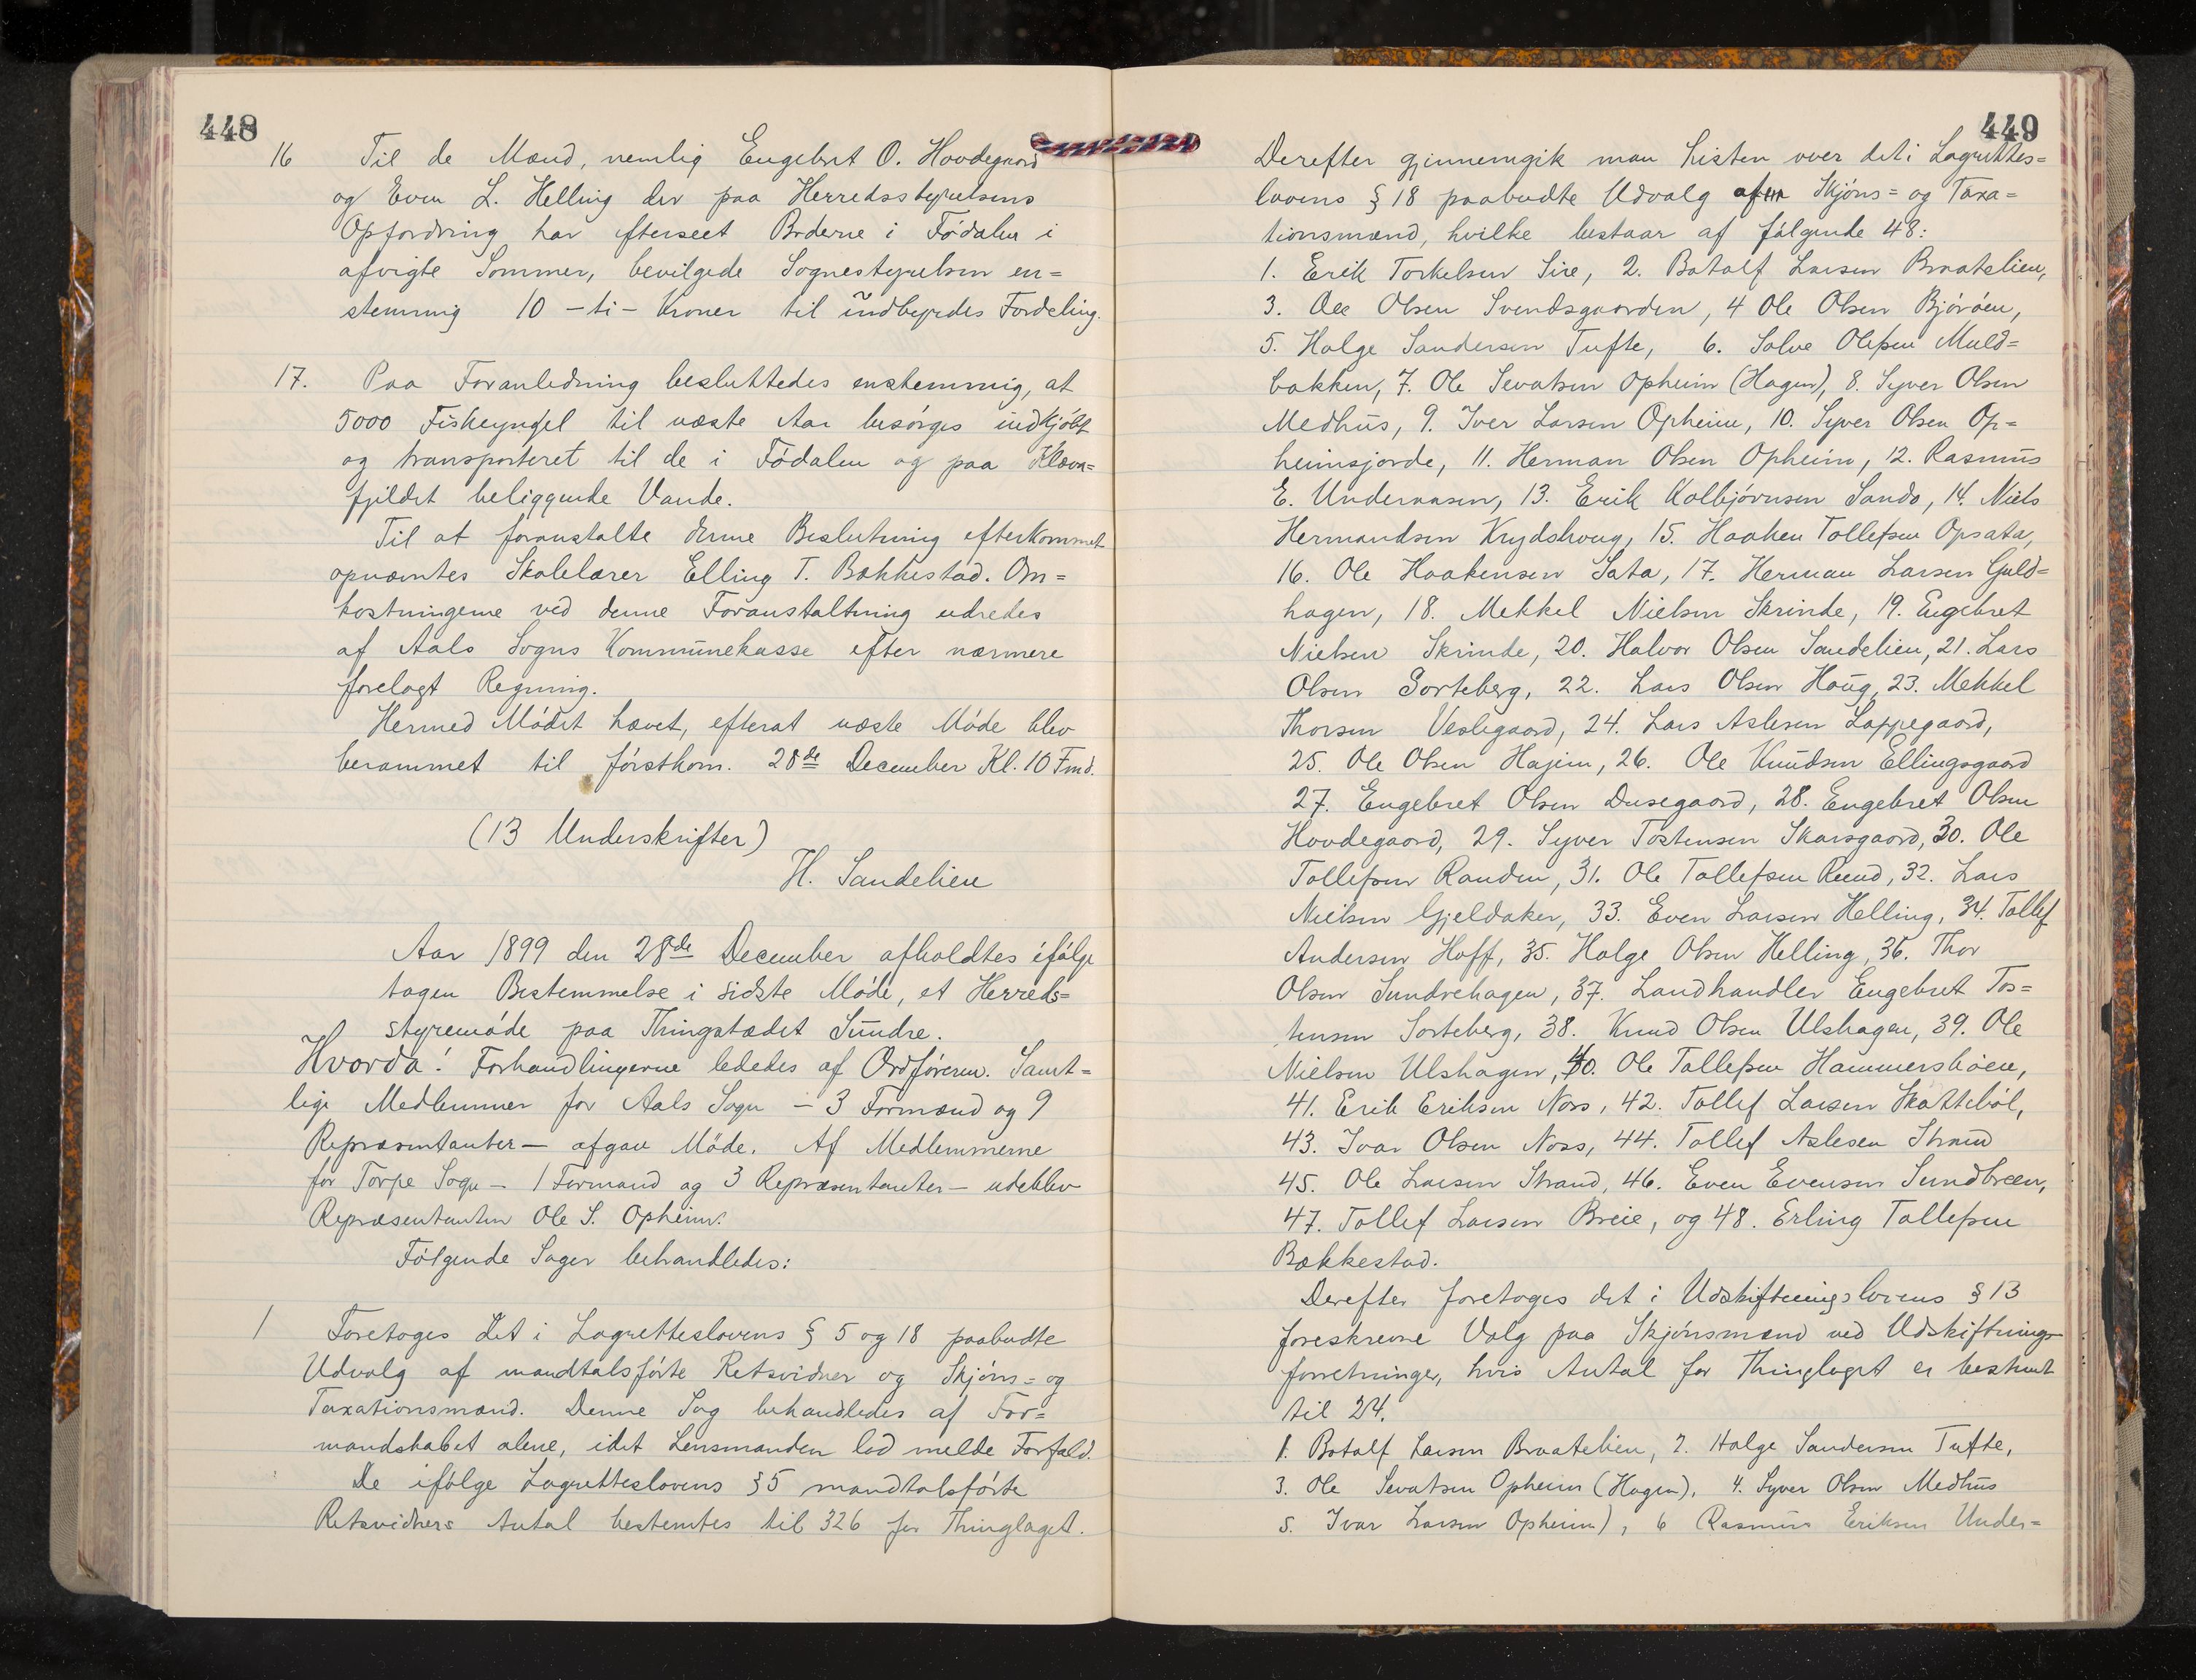 448
16 Til de Mænd, nemlig Engebret O. Hovdegaard
og Even L. Helling der paa Herredsstyrelsens
Opfordring har efterseet Boderne i Fødalen i
afvigte Sommer, bevilgede Sognestyrelsen en=
stemmig 10 - ti - Kroner til indbyrdes Fordeling.
17. Paa Foranledning besluttedes enstemmig, at
5000 Fiskeyngel til næste Aar besørges indkjøbt
og transporteret til de i Fødalen og paa Kløva=
fjeldet beliggende Vande.
Til at foranstalte denne Beslutning efterkommet
opnævntes Skolelærer Elling T. Bækkestad. Om=
kostningerne ved denne Foranstaltning udredes
af Aals Sogns Kommunekasse efter nærmere
forelagt Regning.
Hermed Mødet hævet, efterat næste Møde blev
berammet til førstkom. 28de December Kl. 10 Fmd.
(13 Underskrifter)
H. Sandelien
Aar 1899 den 28de December afholdtes ifølge
tagen Bestemmelse i sidste Møde, et Herreds=
styremøde paa Thingstædet Sundre.
Hvorda! Forhandlingerne lededes af Ordføreren. Samt=
lige Medlemmer for Aals Sogn - 3 Formænd og 9
Repræsentanter - afgav Møde. Af Medlemmerne
for Torpe Sogn - 1 Formand og 3 Repræsentanter - udeblev
Repræsentanten Ole S. Opheim.
Følgende Sager behandledes:
1 Foretoges det i Lagretteslovens § 5 og 18 paabudte
Udvalg af mandtalsførte Retsvidner og Skjøns= og
Taxationsmænd. Denne Sag behandledes af For=
mandskabet alene, idet Lensmanden lod melde Forfald.
De ifølge Lagretteslovens § 5 mandtalsførte
Retsvidners Antal bestemtes til 326 for Thinglaget.
449
Derefter gjennemgik man Listen over det i Lagrettes=
lovens § 18 paabudte Udvalg af Skjøns= og Taxa=
tionsmænd, hvilke bestaar af følgende 48:
1. Erik Torkelsen Sire, 2. Botolf Larsen Braatelien,
3. Ole Olsen Svendsgaarden, 4 Ole Olsen Bjørøen,
5. Holge Sandersen Tufte, 6. Solve Olessen Muld=
bakken, 7. Ole Sevatsen Opheim (Hagen), 8. Syver Olsen
Medhus, 9. Iver Larsen Opheim, 10. Syver Olsen Op=
heimsjorde, 11. Herman Olsen Opheim, 12. Rasmus
E. Underaasen, 13. Erik Kolbjørnsen Sando, 14. Niels
Hermandsen Krydshoug, 15. Haaken Tollefsen Opsata,
16. Ole Haakensen Sata, 17. Herman Larsen Guld=
hagen, 18. Mekkel Nielsen Skrinde, 19. Engebret
Nielsen Skrinde, 20. Halvor Olsen Sandelien, 21. Lars
Olsen Sorteberg, 22. Lars Olsen Houg, 23. Mekkel
Thorsen Veslegaard, 24. Lars Aslesen Lappegaard,
25. Ole Olsen Hajem, 26. Ole Knudsen Ellingsgaard
27. Engebret Olsen Dusegaard, 28. Engebret Olsen
Hovdegaard, 29. Syver Tostensen Skarsgaard, 30. Ole
Tollefsen Randen, 31. Ole Tollefsen Rund, 32. Lars
Nielsen Gjeldaker, 33. Even Larsen Helling, 34. Tollef
Andersen Hoff, 35. Holge Olsen Helling, 36. Thor
Olsen Sundrehagen, 37. Landhandler Engebret Tos=
tensen Sorteberg, 38. Knud Olsen Ulshagen, 39. Ole
Nielsen Ulshagen, 40. Ole Tollefsen Hammersbøen,
41. Erik Eriksen Noss, 42. Tollef Larsen Skattebøl,
43. Ivar Olsen Noss, 44. Tollef Aslesen Strand
45. Ole Larsen Strand, 46. Even Evensen Sundbreen,
47. Tollef Larsen Breie, og 48. Erling Tollefsen
Bækkestad.
Derefter foretoges det i Udskiftningslovens § 13
foreskrevne Valg paa Skjønsmænd ved Udskiftnings-
forretninger, hvis Antal for Thinglaget er bestemt
til 24.
1. Botolf Larsen Braatelien, 2. Holge Sandersen Tufte,
3. Ole Sevatsen Opheim (Hagen), 4. Syver Olsen Medhus
5. Ivar Larsen Opheim), 6 Rasmus Eriksen Under=